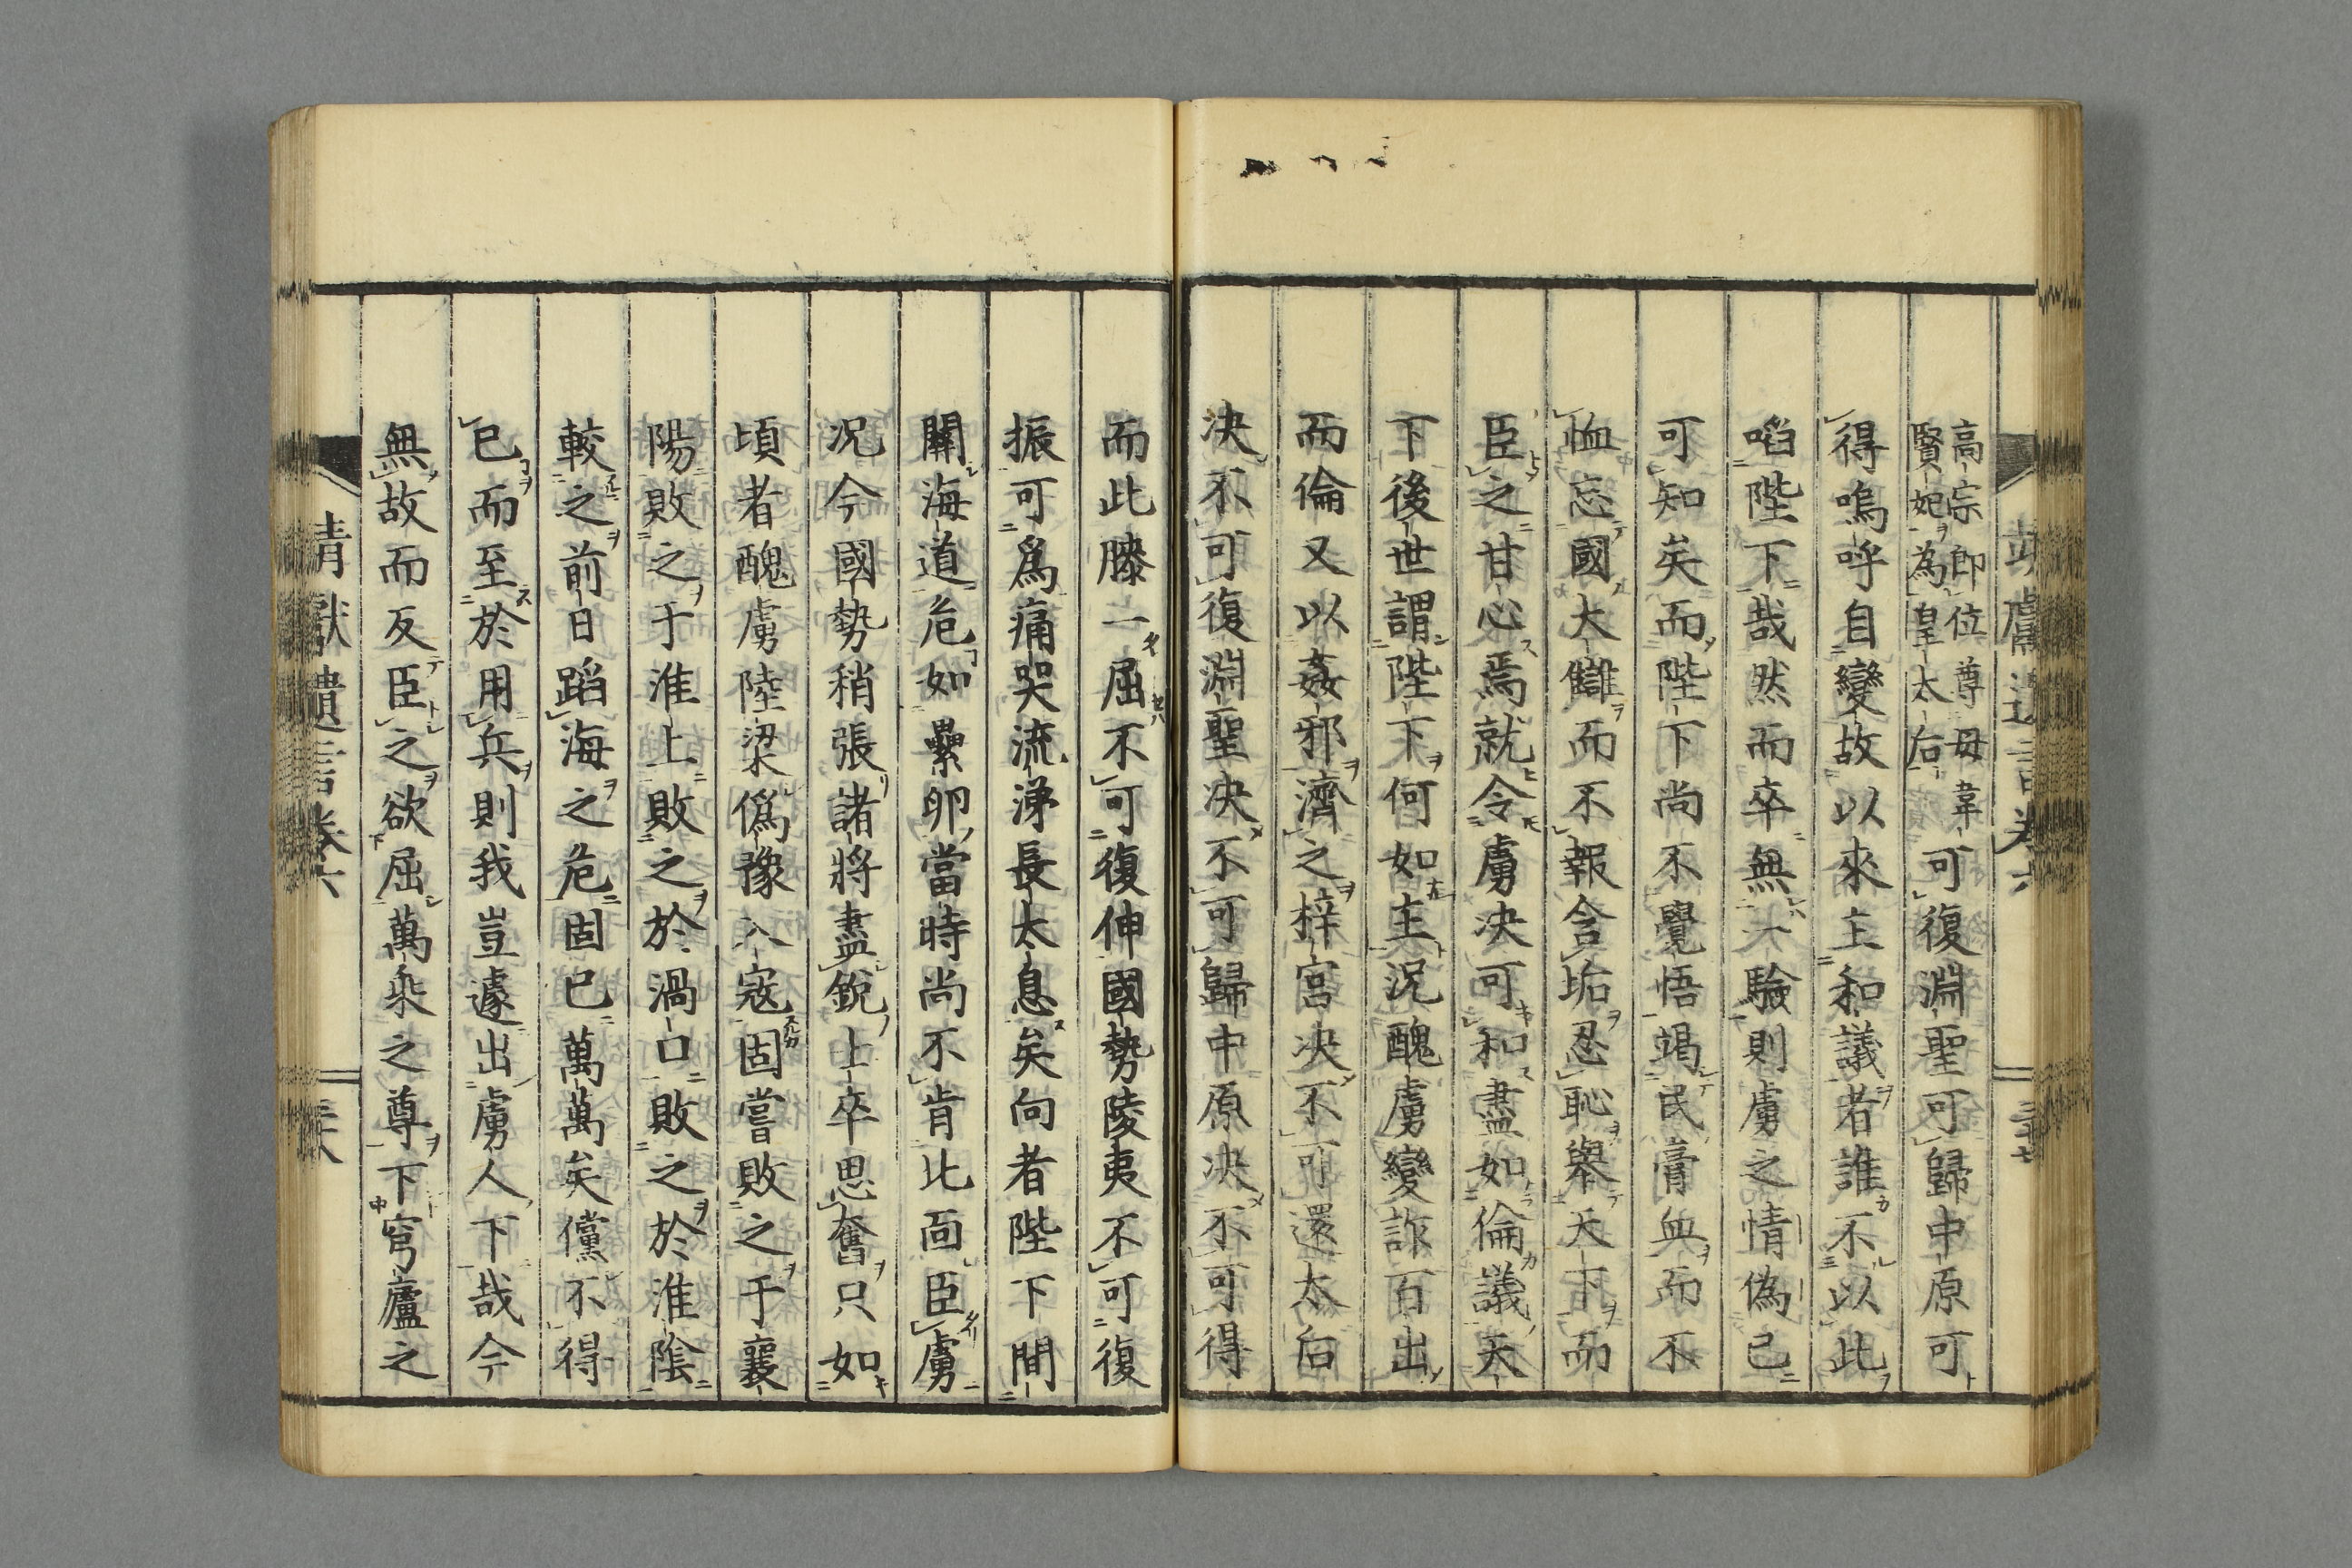 靖獻遺言卷六
三十七
高宗即位尊母韋
賢妃為皇太后
可復淵聖可歸中原可
得嗚呼自變故以來主和議者誰不以此
啗陛下哉然而卒無一驗則虜之情偽已
可知矣而陛下尚不覺悟竭民膏血而不
恤忘國大讎而不報含垢忍恥舉天下而
臣之甘心焉就令虜決可和盡如倫議天
下後世謂陛下何如主況醜虜變詐百出
而倫又以姦邪濟之梓宮决不可還太后
决不可復淵聖决不可歸中原决不可得
而此膝一屈不可復伸國勢陵夷不可復
振可爲痛哭流涕長太息矣向者陛下間
關海道危如纍卵當時尚不肯北面臣虜
况今國勢稍張諸將盡銳士卒思奮只如
頃者醜虜陸梁僞豫入寇固嘗敗之于襄
陽敗之于淮上敗之於渦口敗之於淮陰
較之前日蹈海之危固已萬萬矣儻不得
已而至於用兵則我豈遽出虜人下哉今
無故而反臣之欲屈萬乘之尊下穹廬之
靖獻遺言卷六
三十八